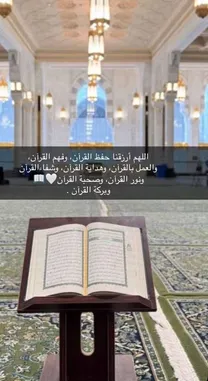 اللهم أرزقنا حفظ القرآن، وفهم القرآن،
والعمل بالقرآن، وهداية القرآن، وشفاء القرآن
ونور القرآن، وصحبة القرآن🤍📖
وبركة القرآن .